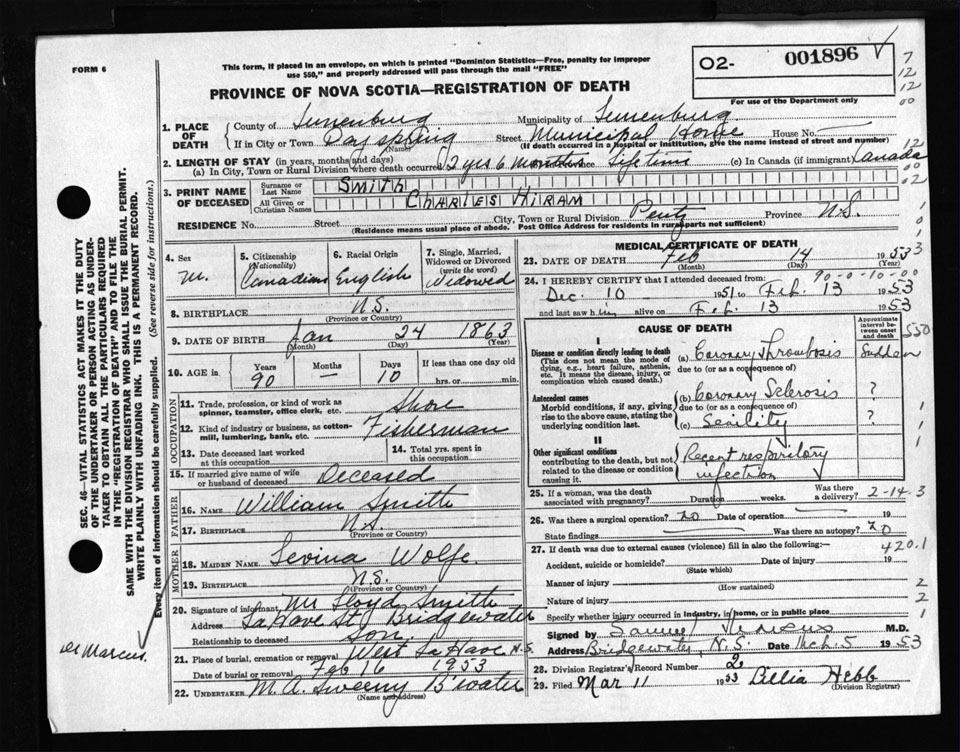 FORM 6
This form, if placed in an envelope, on which is printed "Dominion Statistics—Free, penalty for improper
use $50," and properly addressed will pass through the mail "FREE"
O2- 001896
For use of the Department only
PROVINCE OF NOVA SCOTIA—REGISTRATION OF DEATH
7
12
12
00
12
00
02
SEC. 46—VITAL STATISTICS ACT MAKES IT THE DUTY
OF THE UNDERTAKER OR PERSON ACTING AS UNDER-
TAKER TO OBTAIN ALL THE PARTICULARS REQUIRED
IN THE "REGISTRATION OF DEATH" AND TO FILE THE
SAME WITH THE DIVISION REGISTRAR WHO SHALL ISSUE THE BURIAL PERMIT.
WRITE PLAINLY WITH UNFADING INK. THIS IS A PERMANENT RECORD.
Every item of information should be carefully supplied. (See reverse side for instructions.)
1. PLACE OF DEATH
County of Lunenburg Municipality of Lunenburg
If in City or Town Dayspring Street Municipal Home House No.
(Name) (If death occurred in a hospital or institution, give the name instead of street and number)
2. LENGTH OF STAY (in years, months and days)
(a) In City, Town or Rural Division where death occurred 2 yrs 6 months Life time (c) In Canada (if immigrant) Canada
3. PRINT NAME OF DECEASED
Surname or Last Name SMITH
All Given or Christian Names CHARLES HIRAM
RESIDENCE No. Street City, Town or Rural Division Pentz Province N.S.
(Residence means usual place of abode. Post Office Address for residents in rural parts not sufficient)
4. Sex M.
5. Citizenship (Nationality) Canadian
6. Racial Origin English
7. Single, Married, Widowed or Divorced (write the word) Widowed
8. BIRTHPLACE N.S.
(Province or Country)
9. DATE OF BIRTH Jan 24 1863
(Month) (Day) (Year)
10. AGE in Years 90 Months — Days 10 If less than one day old hrs. or min.
OCCUPATION
11. Trade, profession, or kind of work as
spinner, teamster, office clerk, etc. Shore
12. Kind of industry or business, as cotton-
mill, lumbering, bank, etc. Fisherman
13. Date deceased last worked
at this occupation
14. Total yrs. spent in
this occupation
15. If married give name of wife
or husband of deceased Deceased
FATHER
16. NAME William Smith
17. BIRTHPLACE N.S.
(Province or Country)
MOTHER
18. MAIDEN NAME Levina Wolfe
19. BIRTHPLACE N.S.
(Province or Country)
20. Signature of informant Mr Lloyd Smith
Address LaHave St Bridgewater
Relationship to deceased Son.
21. Place of burial, cremation or removal West LaHave N.S.
Date of burial or removal Feb 16 1953
22. UNDERTAKER M. A. Sweeny B'water
(Name and address)
Marcus.
MEDICAL CERTIFICATE OF DEATH
23. DATE OF DEATH Feb 14 1953
(Month) (Day) (Year)
90-0-10-00
24. I HEREBY CERTIFY that I attended deceased from:
Dec. 10 1951 to Feb. 13 1953
and last saw him alive on Feb. 13 1953
CAUSE OF DEATH
Approximate interval between onset and death
550
I
Disease or condition directly leading to death
(This does not mean the mode of
dying, e.g., heart failure, asthenia,
etc. It means the disease, injury, or
complication which caused death.)
(a) Coronary Thrombosis Sudden
due to (or as a consequence of)
Antecedent causes
Morbid conditions, if any, giving
rise to the above cause, stating the
underlying condition last.
(b) Coronary Sclerosis ?
due to (or as a consequence of)
(c) Senility ?
II
Other significant conditions
contributing to the death, but not
related to the disease or condition
causing it.
Recent respiratory
infection
25. If a woman, was the death
associated with pregnancy? Duration weeks. Was there
a delivery? 2-14-3
26. Was there a surgical operation? no Date of operation 19
State findings Was there an autopsy? no
27. If death was due to external causes (violence) fill in also the following:— 420.1
Accident, suicide or homicide? Date of injury 19
(State which)
Manner of injury
(How sustained)
Nature of injury
Specify whether injury occurred in industry, in home, or in public place
2
2
1
Signed by Samuel M.D.
Address Bridgewater, N.S. Date Mch. 5 1953
28. Division Registrar's Record Number 2
29. Filed Mar 11 1953 Lillia Hebb
(Division Registrar)